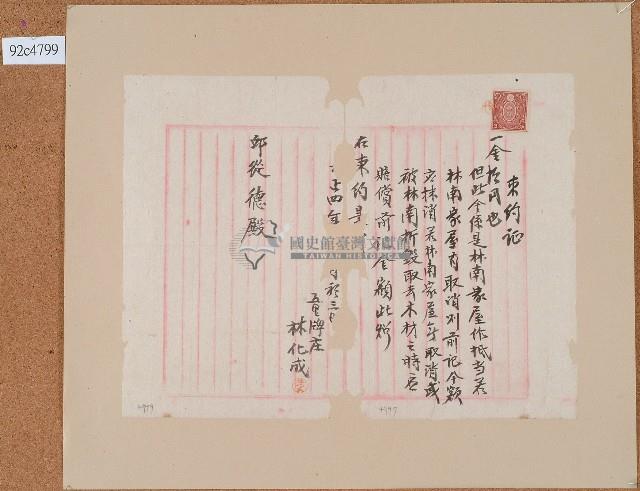 92c4799
束約证
一金拾円也
但此金係是林南家屋作抵当若
林南家屋有取消則前記金額
亦抹消若林南家屋無取消或
被林南折毀取去木材之時宜
賠償前 金額此約
右束約是
正四年 初三日
五 牌庄
林化成
邱從德殿
國史館臺灣文獻館
TAIWAN HISTORICA
4799
4797